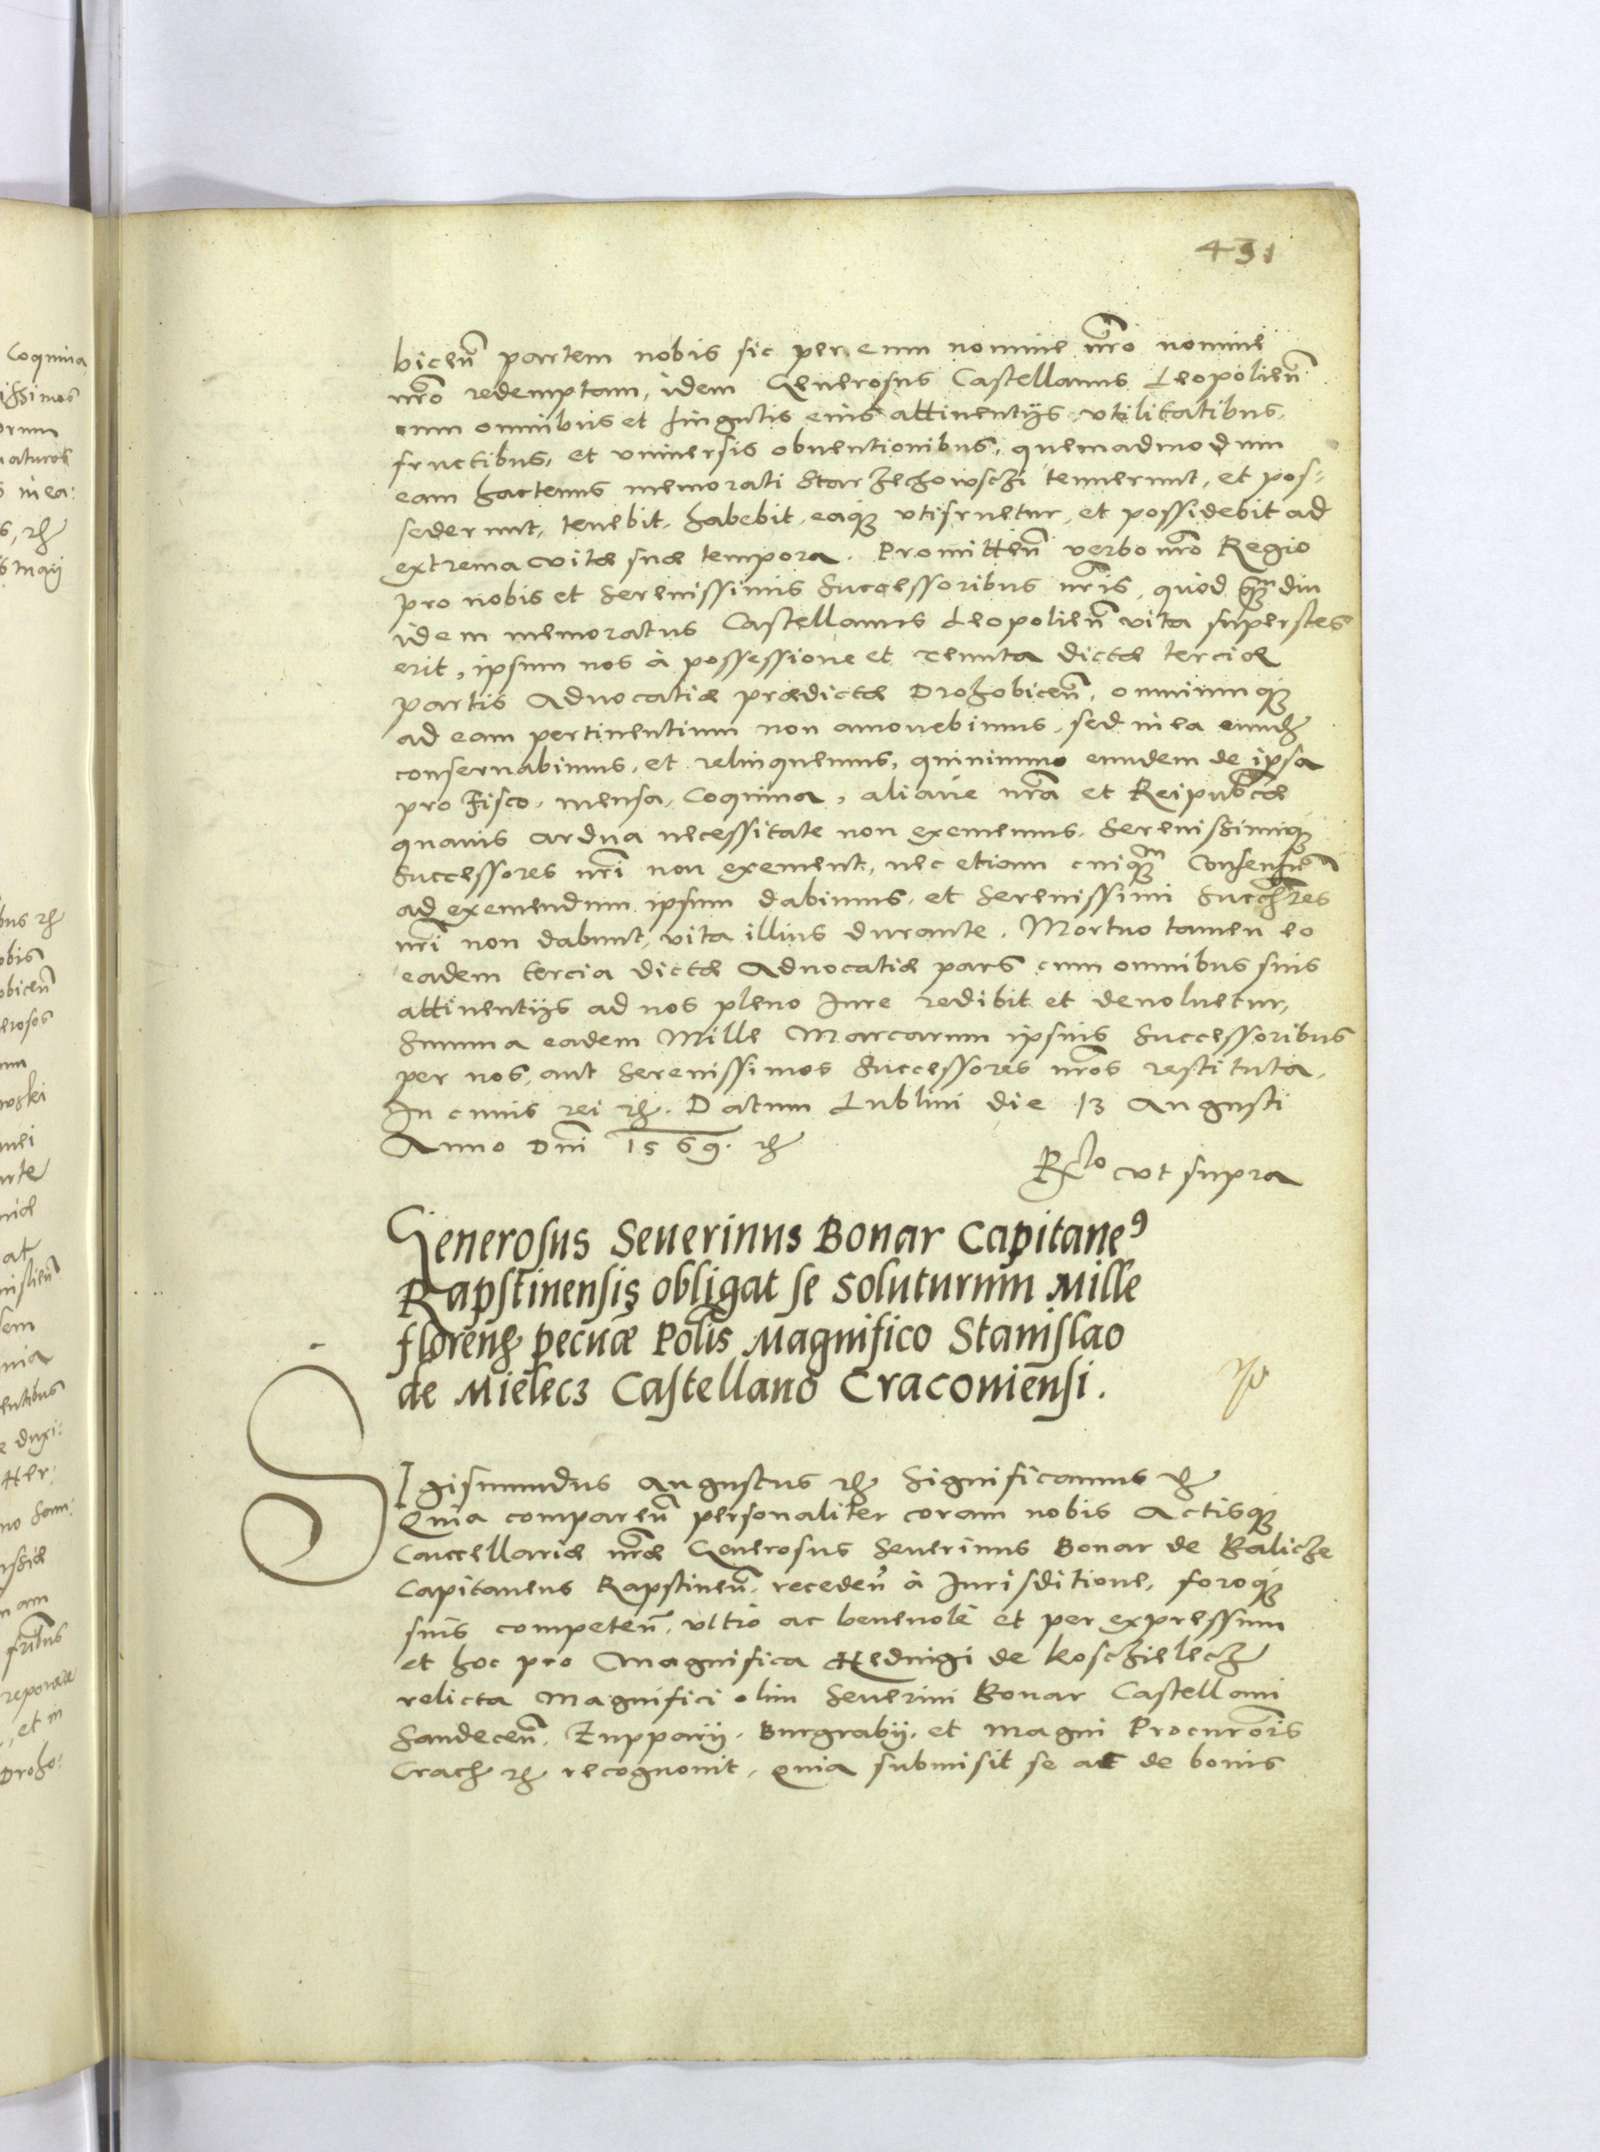 431
biceñ partem nobis sic per eum nomine nr̃o nomine
nr̃o redemptam, idem Generosus Castellanus Leopolieñ
cum omnibus et singulis eius attinentijs, vtilitatibus,
fructibus, et vniuersis obuentionibus, quemadmodum
eam hactenus memorati Starzechowschi tenuerunt, et pos-
sederunt, tenebit, habebit, eaqȝ vtifruetur, et possidebit ad
extrema vitæ suæ tempora. Promitteñ verbo nr̃o Regio
pro nobis et Serenissimis Successoribus nr̃is, quod qȝm diu
idem memoratus Castellanus Leopolieñ vita superstes
erit, ipsum nos à possessione et tenuta dictæ terciæ
partis Aduocatiæ prædictæ Drohobiceñ, omniumqȝ
ad eam pertinentium non amouebimus, sed in ea eundȝ
conseruabimus, et relinquemus, quinimmo eundem de ipsa
pro Fisco, mensa, Coquina, aliaue nr̃a et Reipub̃cæ
quauis ardua necessitate non exememus, Serenissimiqȝ
Successores nr̃i non exement, nec etiam cuiqȝm Consensũ
ad exemendum ipsum dabimus, et Serenissimi Succes̃res
nr̃i non dabunt, vita illius durante. Mortuo tamen eo
eadem tercia dictæ Aduocatiæ pars cum omnibus suis
attinentijs ad nos pleno Iure redibit et deuoluetur,
Summa eadem Mille Marcarum ipsius Successoribus
per nos, aut Serenissimos Successores nr̃os restituta.
In cuius rei ꝛȝ. Datum Lublini die 13 Augusti
Anno Dñi 1569. ꝛȝ
Rlo vt supra
Generosus Seuerinus Bonar Capitaneꝰ
Rapstinensis obligat se soluturum Mille
florenȝ pecuæ Polis Magnifico Stanislao
de Mielecz Castellano Cracouiensi.
SIgismundus Augustus ꝛȝ Significamus ꝛȝ
Quia compareñ personaliter coram nobis Actisqȝ
Cancellariæ nr̃æ Generosus Seuerinus Bonar de Balicze
Capitaneus Rapstineñ, recedeñ à Iurisditione, foroqȝ
suis competeñ, vltro ac beneuolè et per expressum
et hoc pro Magnifica Heduigi de Koszielecz
relicta Magnifici olim Seuerini Bonar Castellani
Sandeceñ, Zupparij, Burgrabij, et Magni Procurõris
Cracȝ ꝛȝ recognouit, quia submisit se ac de bonis